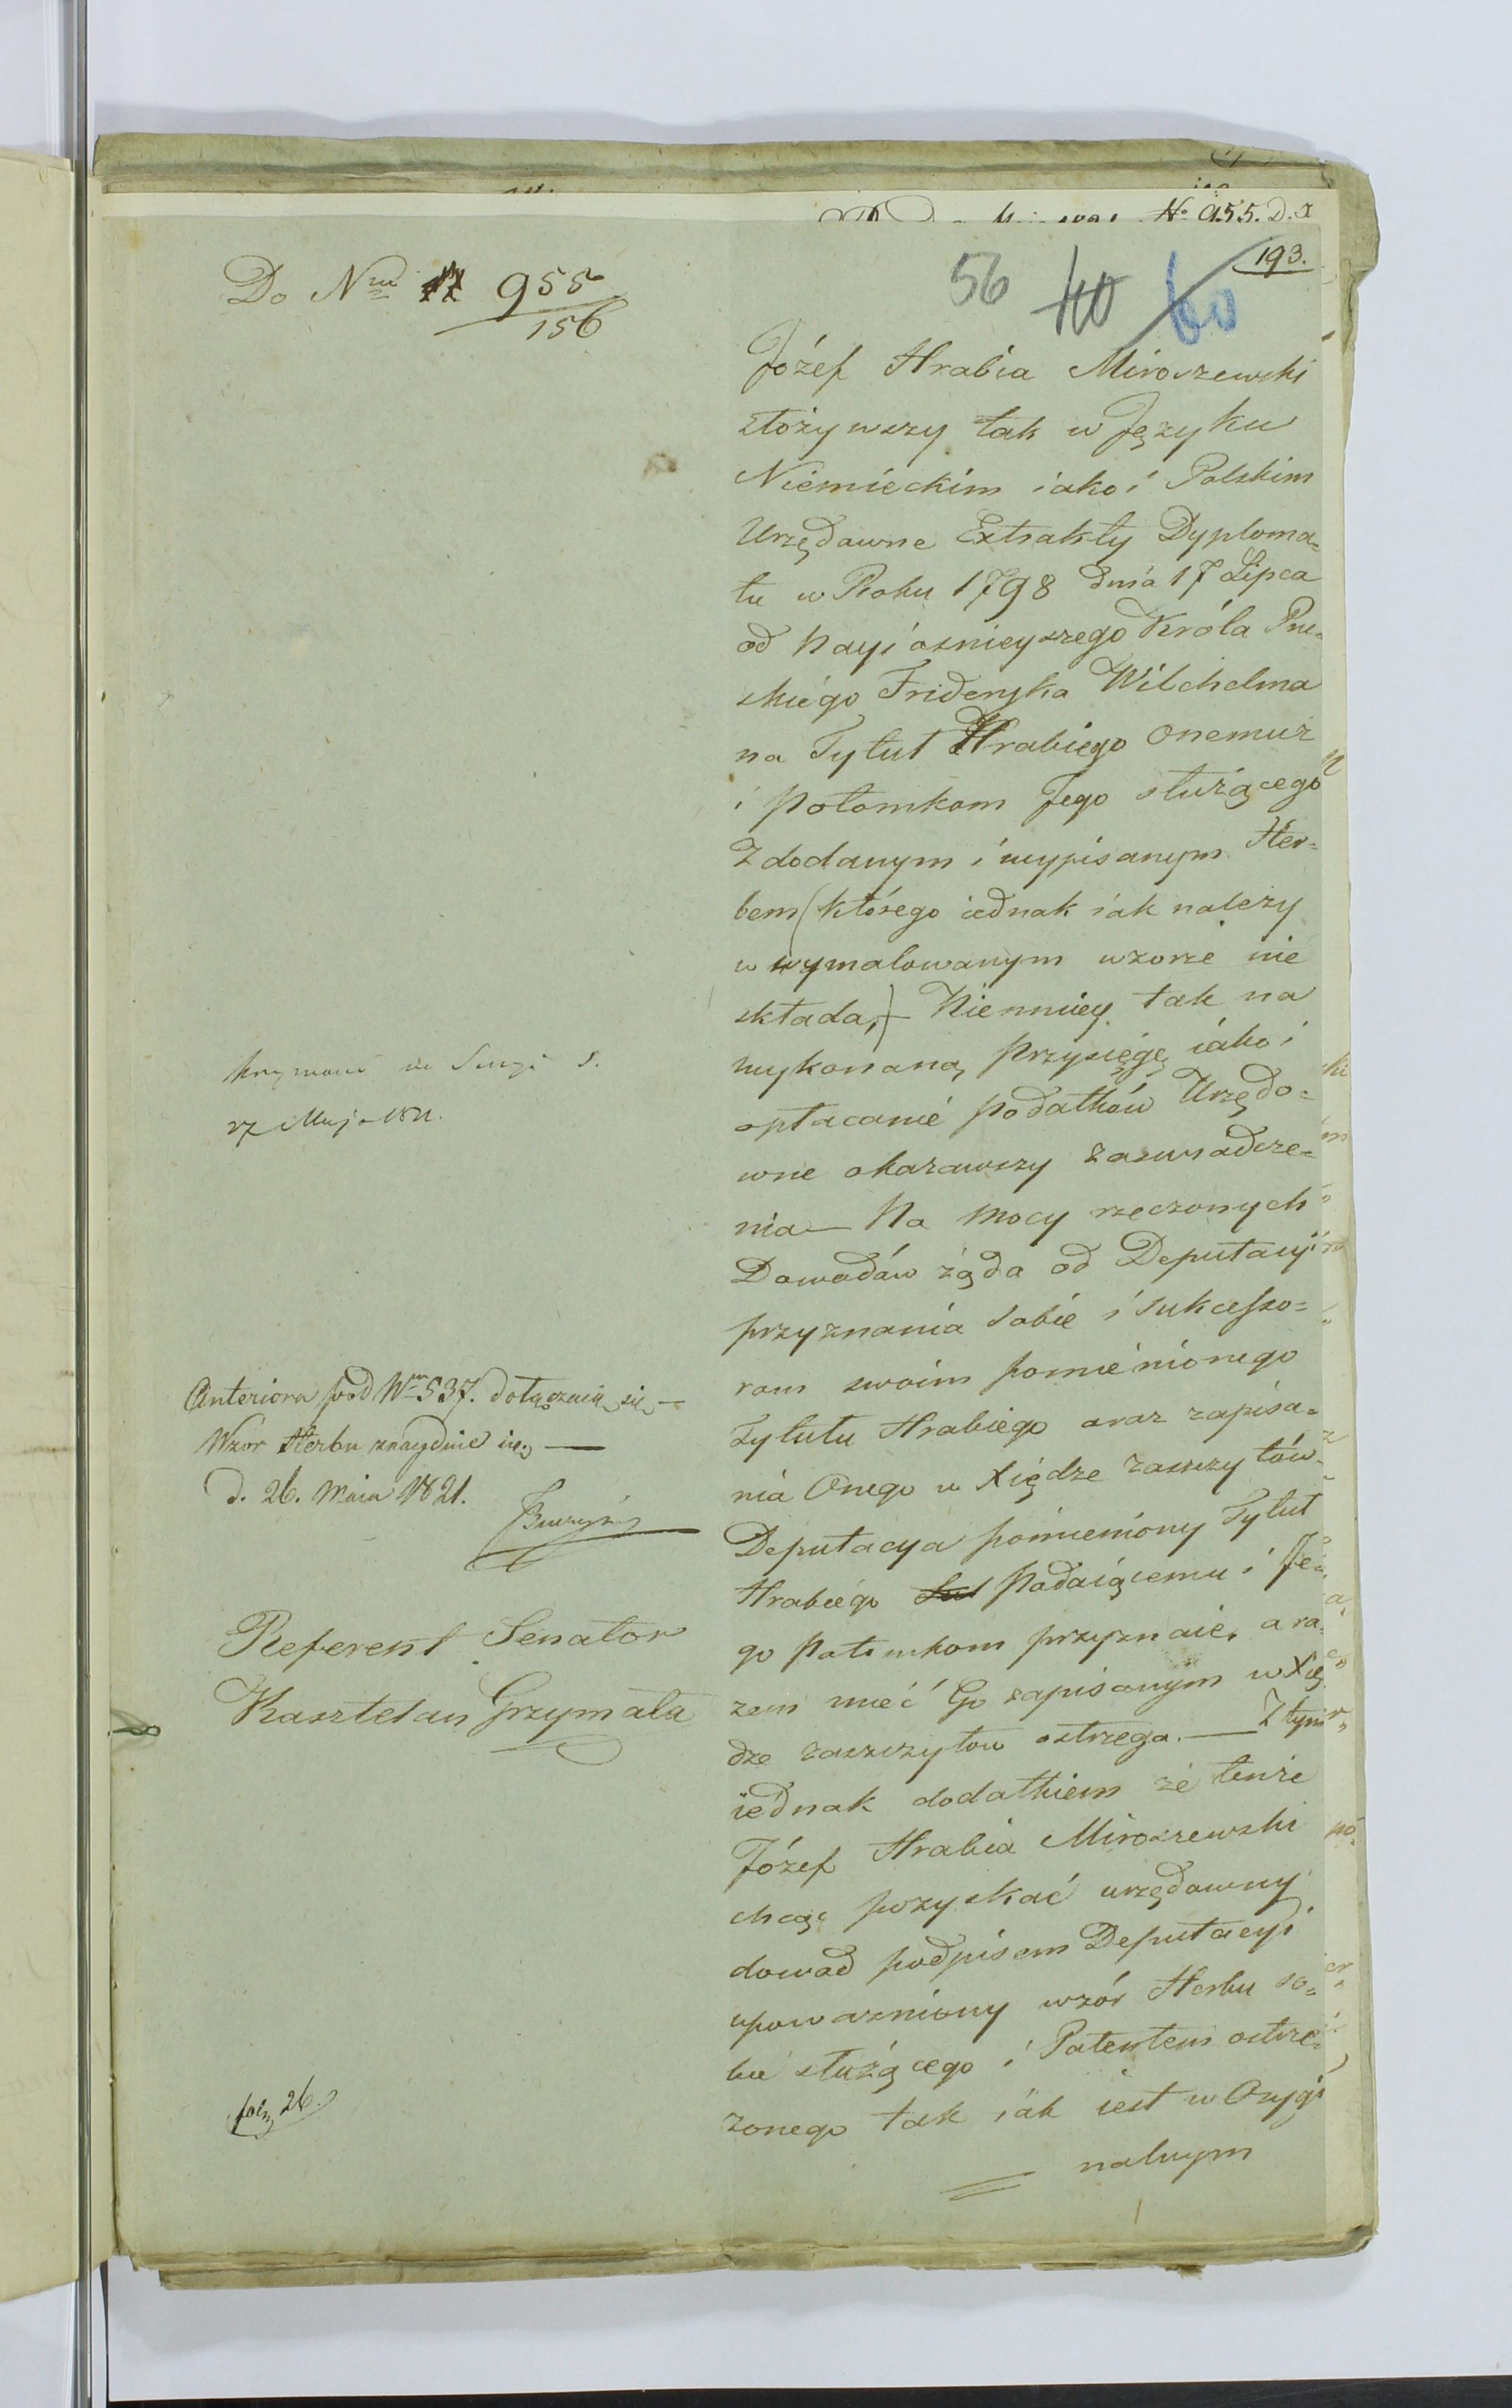 No 955. D. I
193.
56 40 60
Do Nru 955
156
Józef Hrabia Miroszewski
złożywszy tak w Języku
Niemieckim iako i Polskim
Urzędowne Extrakty Dyploma=
tu w Roku 1798 dnia 17 Lipca
od Nayiasnieyszego Króla Pru=
skiego Frideryka Wilchelma
na Tytuł Hrabiego Onemuż
i Potomkom Jego służącego
Z dodanym i wypisanym Her=
bem (którego iednak iak należy
w wymalowanym wzorze nie
składa,) — Niemniey tak na
wykonaną Przysięgę iako i
opłacanie Podatków Urzędo=
wne okazawszy zaswiadcze=
nia — Na Mocy rzeczonych
Dowodów żąda od Deputacyi
przyznania sobie i Sukcesso=
rom swoim pomienionego
Tytułu Hrabiego oraz zapisa=
nia Onego w Xiędze zaszczytów —
Deputacya pomieniony Tytuł
Hrabiego Podaiącemu i Je=
go Potomkom przyznaie, a ra=
zem mieć Go zapisanym w Xię
dze zaszczytow ostrzega. — Z tym
iednak dodatkiem że tenże
Józef Hrabia Miroszewski
chcąc pozyskać urzędowny
dowod podpisem Deputacyi
upoważniony wzór Herbu so=
bie służącego i Patentem ostrze=
żonego tak iak iest w Orygi
nalnym
27 Maja 1821.
Anteriora pod Nrm 537. dołączaią się —
Wzor Herbu znayduie się, —
d. 26. Maia 1821.
Referent Senator
Kasztelan Grzymała
26.